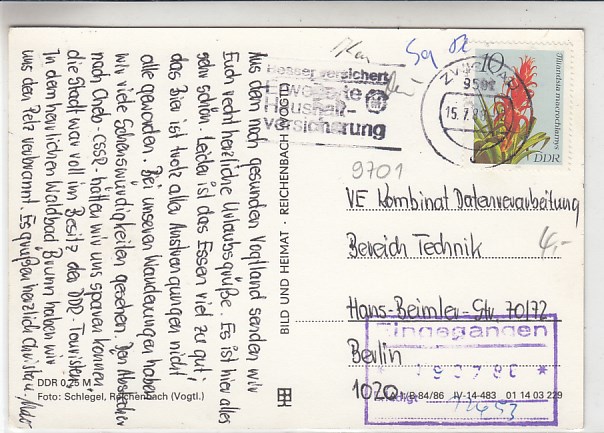 Aus dem auch gesunden Vogtland senden wir
Euch recht herzliche Urlaubsgrüße. Es ist hier alles
sehr schön. Leider ist das Essen viel zu gut,
das Bier ist trotz aller Anstrengungen nicht
alle geworden. Bei unseren Wanderungen haben
wir viele Sehenswürdigkeiten gesehen. Den Abstecher
nach Cheb - CSSR - hätten wir uns sparen können,
die Stadt war voll im Besitz der DDR-Touristen.
In dem herrlichen Waldbad Brunn haben wir
uns den Pelz verbrannt. Es grüßen herzlich Christian,
DDR 0,25 M
Foto: Schlegel, Reichenbach (Vogtl.)
BILD UND HEIMAT · REICHENBACH (VOGTL)
Besser versichert
Erweiterte
Haushalt-
versicherung
ZWICKAU
9501
15.7.86
10
Tillandsia macrochlamys
DDR
9701
VE Kombinat Datenverarbeitung
Bereich Technik
4,-
Hans-Beimler-Str. 70/72
Berlin
1020
Eingegangen
A 1/B 84/86 IV-14-483 01 14 03 229